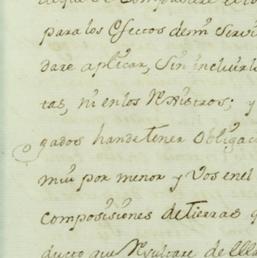 para los Efectos de mi Servi
dare aplicar, sin incluirl
tas, ni en los Rexistros; y
gados han de tener obligac
mui por menor y Vos en el
composiciones de tierras q
ducto que Resultare de ella